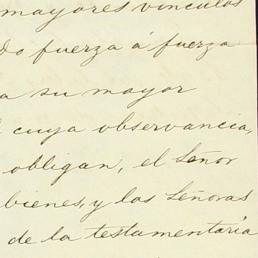 mayores vínculos
do fuerza á fuerza
a su mayor
cuya observancia,
obligan, el Señor
bienes, y las Señoras
de la testamentaría